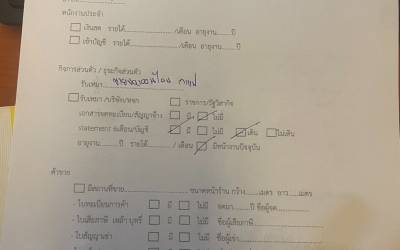 พนักงานประจำ
เงินสด รายได้.................../เดือน อายุงาน......ปี
เข้าบัญชี รายได้.................../เดือน อายุงาน......ปี
กิจการส่วนตัว / ธุรกิจส่วนตัว
รับเหมา
รับเหมา /บริษัท/หจก ราชการ/รัฐวิสาหกิจ
เอกสารจดทะเบียน/สัญญาจ้าง มี ไม่มี
statement 6เดือน/บัญชี มี ไม่มี เดิน ไม่เดิน
อายุงาน......ปี รายได้......../ เดือน มีหน้างานปัจจุบัน
ค้าขาย
มีสถานที่ขาย....................ขนาดหน้าร้าน กว้าง......เมตร ยาว......เมตร
- ใบทะเบียนการค้า มี ไม่มี จดมา......ปี ชื่อผู้จด.........
- ใบเสียภาษี เหล้า บุหรี่ มี ไม่มี ชื่อผู้เสียภาษี.............
- ใบสัญญาเช่า มี ไม่มี ชื่อผู้เช่า.............